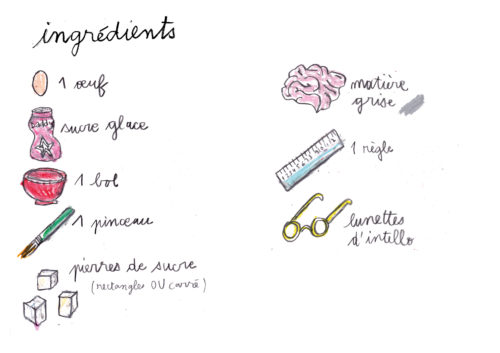 ingrédients
1 œuf
sucre glace
1 bol
1 pinceau
pierres de sucre
(rectangles OU carré)
matière
grise
1 règle
lunettes
d'intello